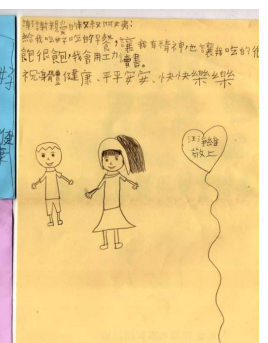 謝謝親愛的叔叔阿姨:
給我吃好吃的早餐,讓我有精神也讓我吃的很
飽很飽,我會用工力讀書。
祝身體健康、平平安安、快快樂樂
敬上